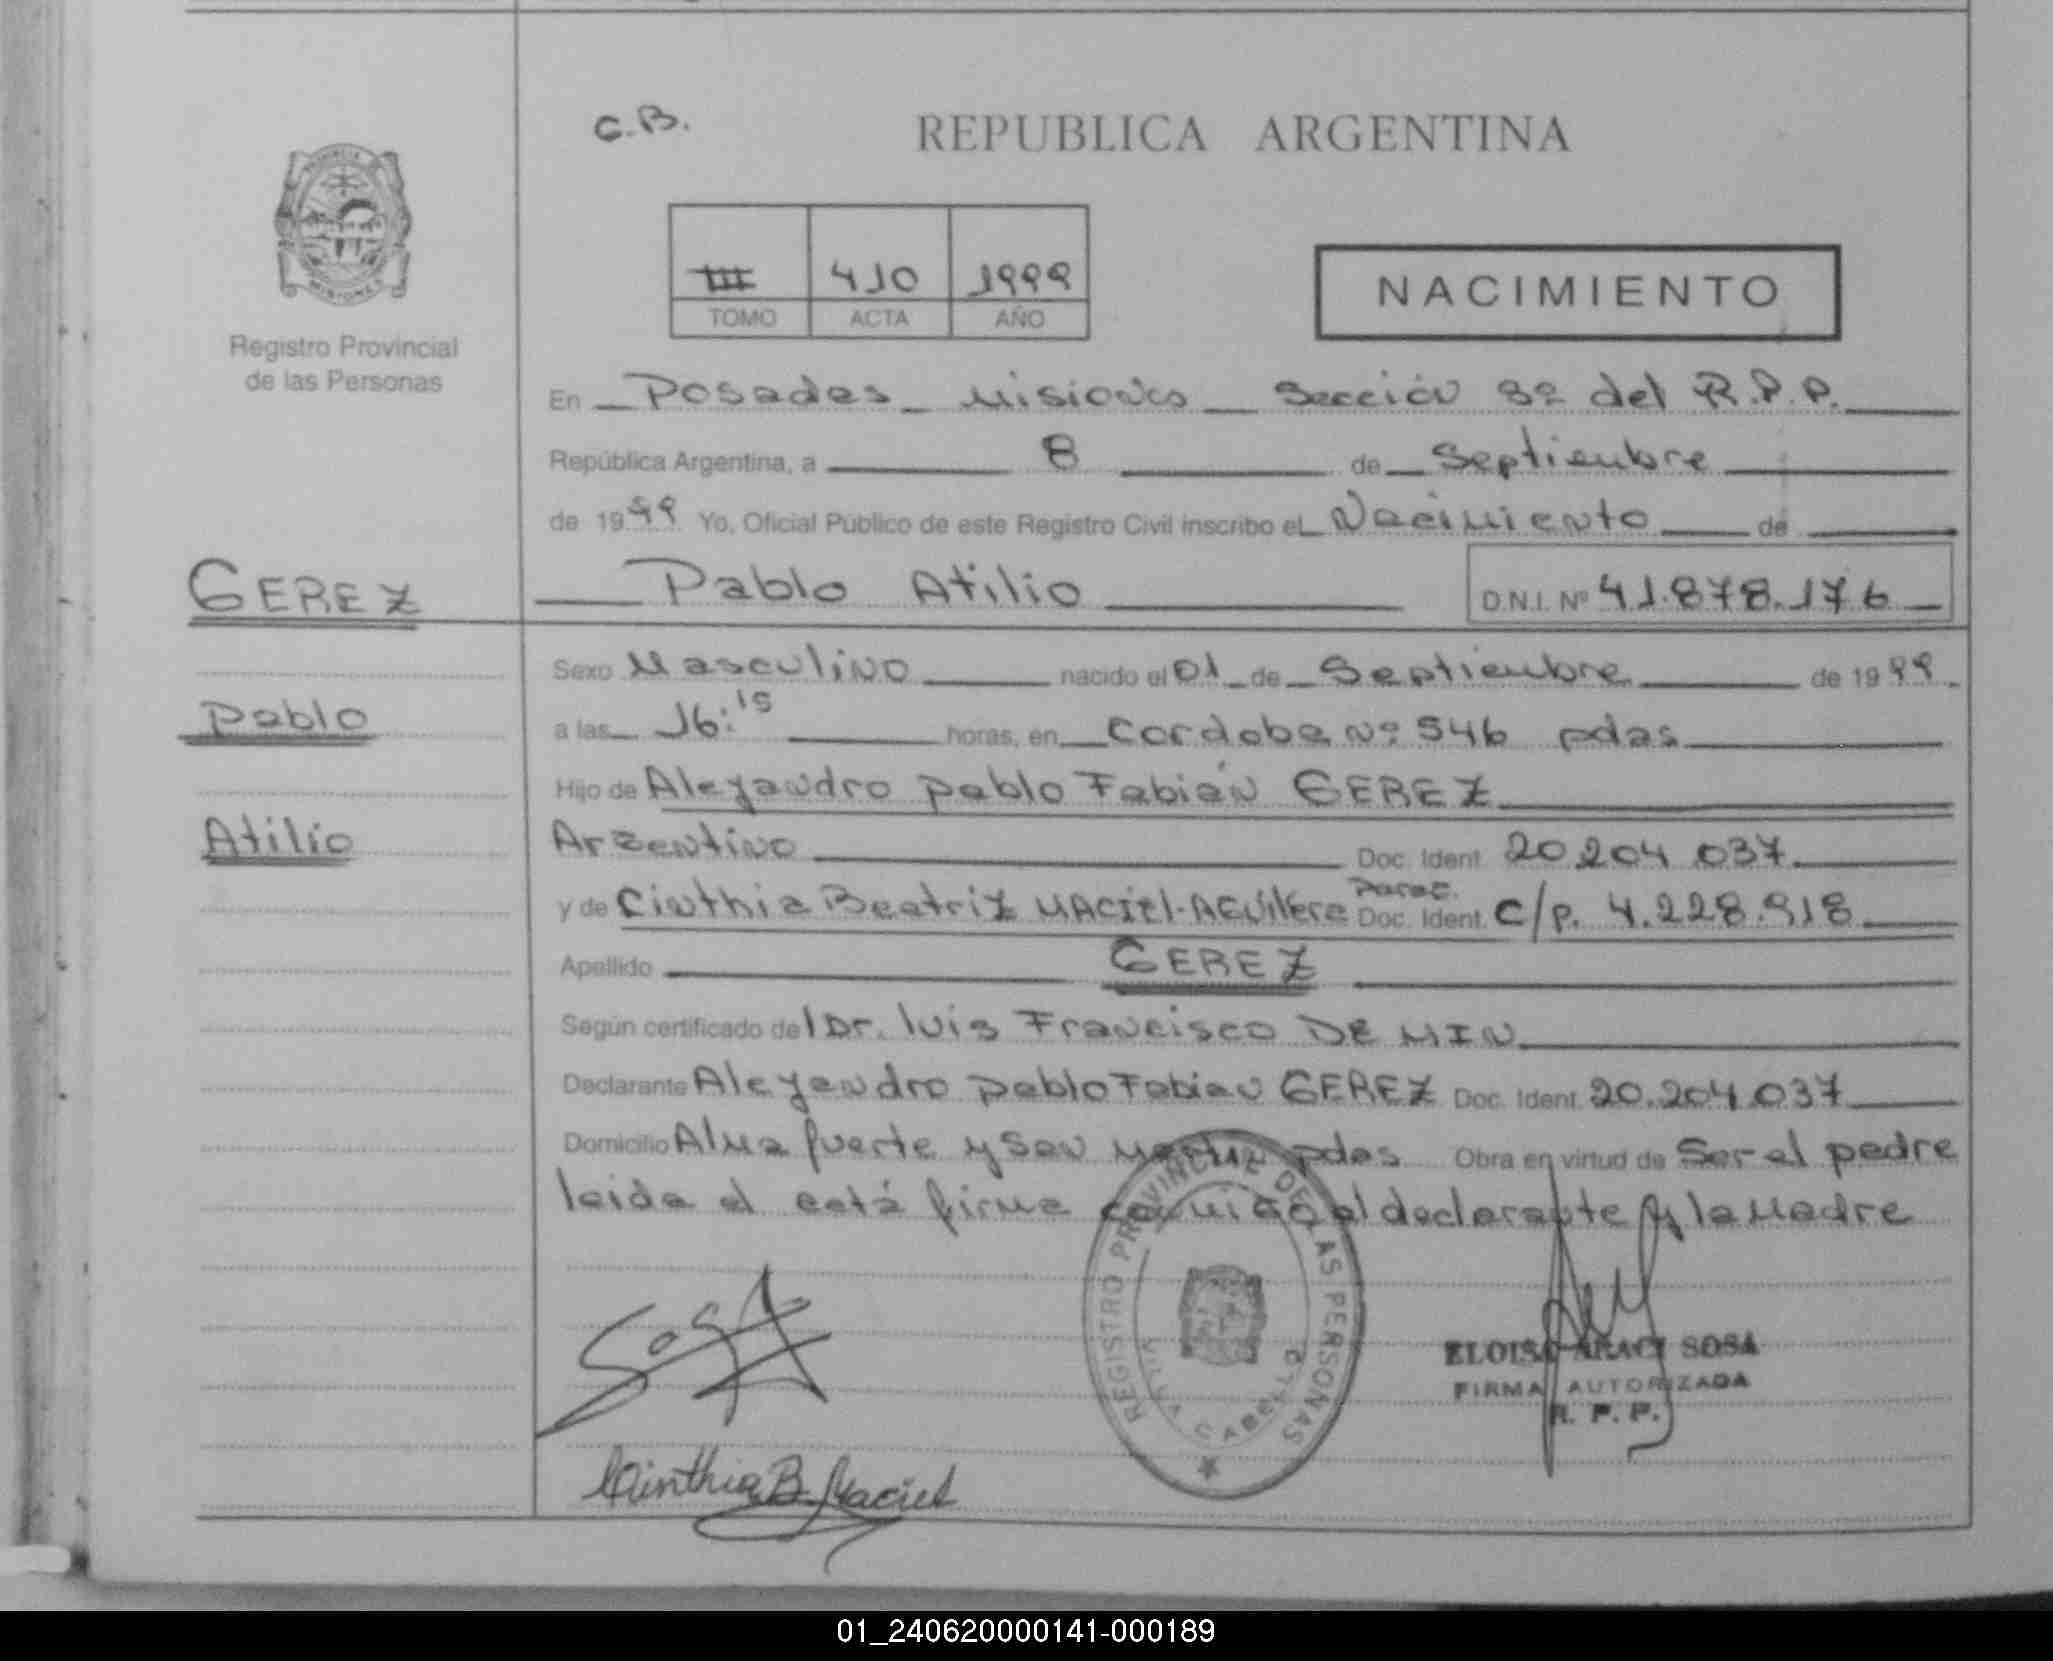 C.B.
REPUBLICA ARGENTINA
PROVINCIA
MISIONES
Registro Provincial
de las Personas
III 410 1999
TOMO ACTA AÑO
NACIMIENTO
En Posadas Misiones Sección 3º del R.P.P.
República Argentina, a 8 de Septiembre
de 1999 Yo, Oficial Público de este Registro Civil inscribo el Nacimiento de
GEREZ
Pablo Atilio D.N.I. Nº 41.878.176
Sexo Masculino nacido el 01 de Septiembre de 1999
Pablo
a las 16:15 horas, en Cordoba Nº 546 pdas
Hijo de Alejandro Pablo Fabián GEREZ
Atilio
Argentino Doc. Ident. 20.204.037
y de Cinthia Beatriz MACIEL-AGUILERA Parag. Doc. Ident. C/p. 4.228.918
Apellido GEREZ
Según certificado del Dr. Luis Francisco DE MIN
Declarante Alejandro Pablo Fabian GEREZ Doc. Ident. 20.204.037
Domicilio Alma fuerte y San Martin pdas Obra en virtud de Ser el padre
leida el acta firma conmigo el declarante y la Madre
REGISTRO PROVINCIAL DE LAS PERSONAS
VILLA CABELLO
ELOISA ARACI SOSA
FIRMA AUTORIZADA
R. P. P.
Cinthia B. Maciel
01_240620000141-000189